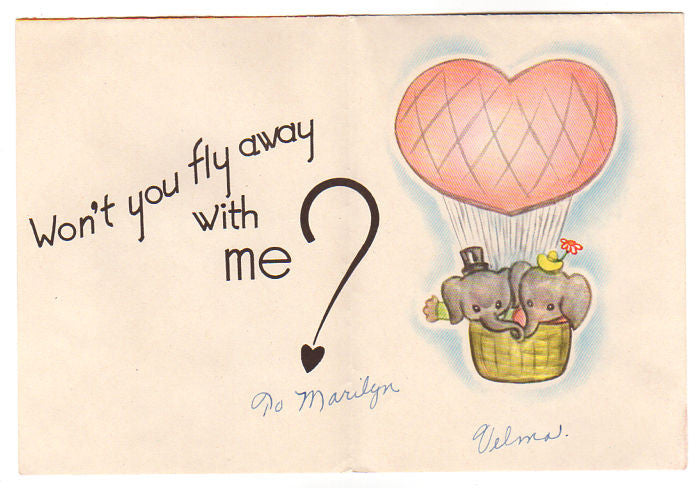 Won't you fly away
with
me?
To Marilyn
Velma.